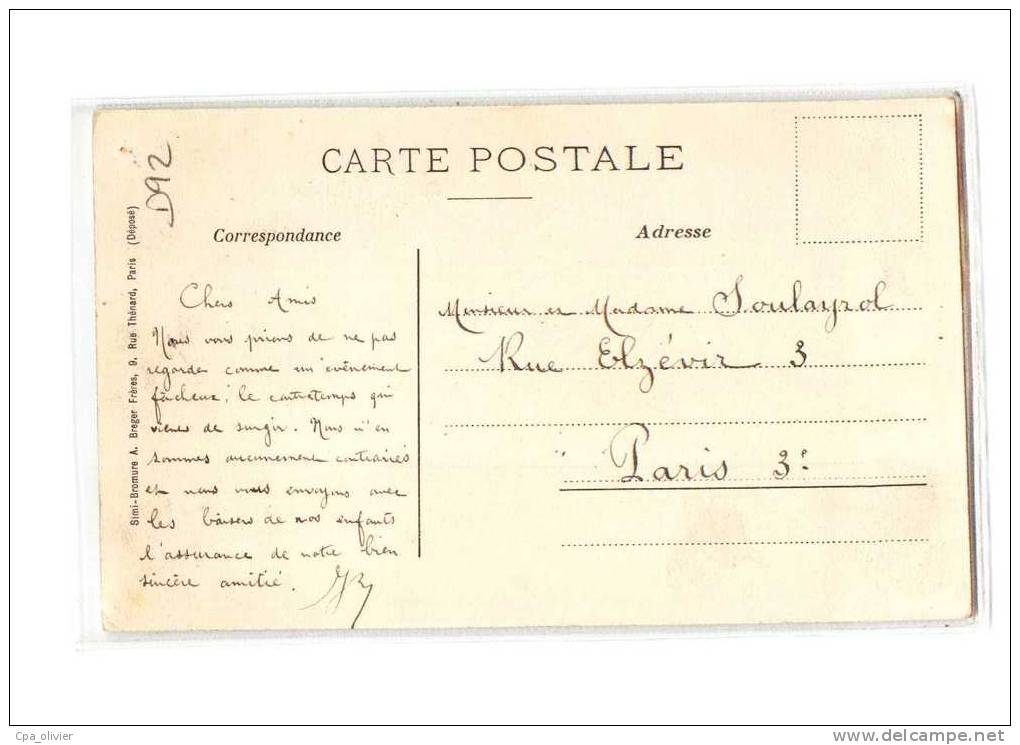 CARTE POSTALE
D92
Simi-Bromure A. Breger Frères, 9, Rue Thénard, Paris (Déposé)
Correspondance
Chers Amis
Nous vous prions de ne pas
regarder comme un évènement
fâcheux, le contretemps qui
vient de surgir. Nous n'en
sommes aucunement contrariés
et nous vous envoyons avec
les baisers de nos enfants
l'assurance de notre bien
sincère amitié.
Adresse
Monsieur et Madame Soulayrol
Rue Elzévir 3
Paris 3e
Cpa_olivier
www.delcampe.net